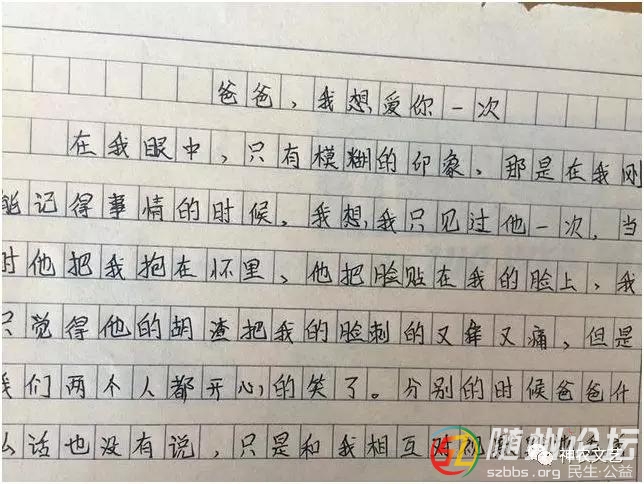 爸爸，我想爱你一次
在我眼中，只有模糊的印象、那是在我刚
能记得事情的时候、我想，我只见过他一次、当
时他把我抱在怀里、他把脸贴在我的脸上、我
只觉得他的胡渣把我的脸刺的又痒又痛，但是
我们两个人都开心的笑了。分别的时候爸爸什
么话也没有说，只是和我相互对视
随州论坛
神农文艺
szbbs.org 民生·公益